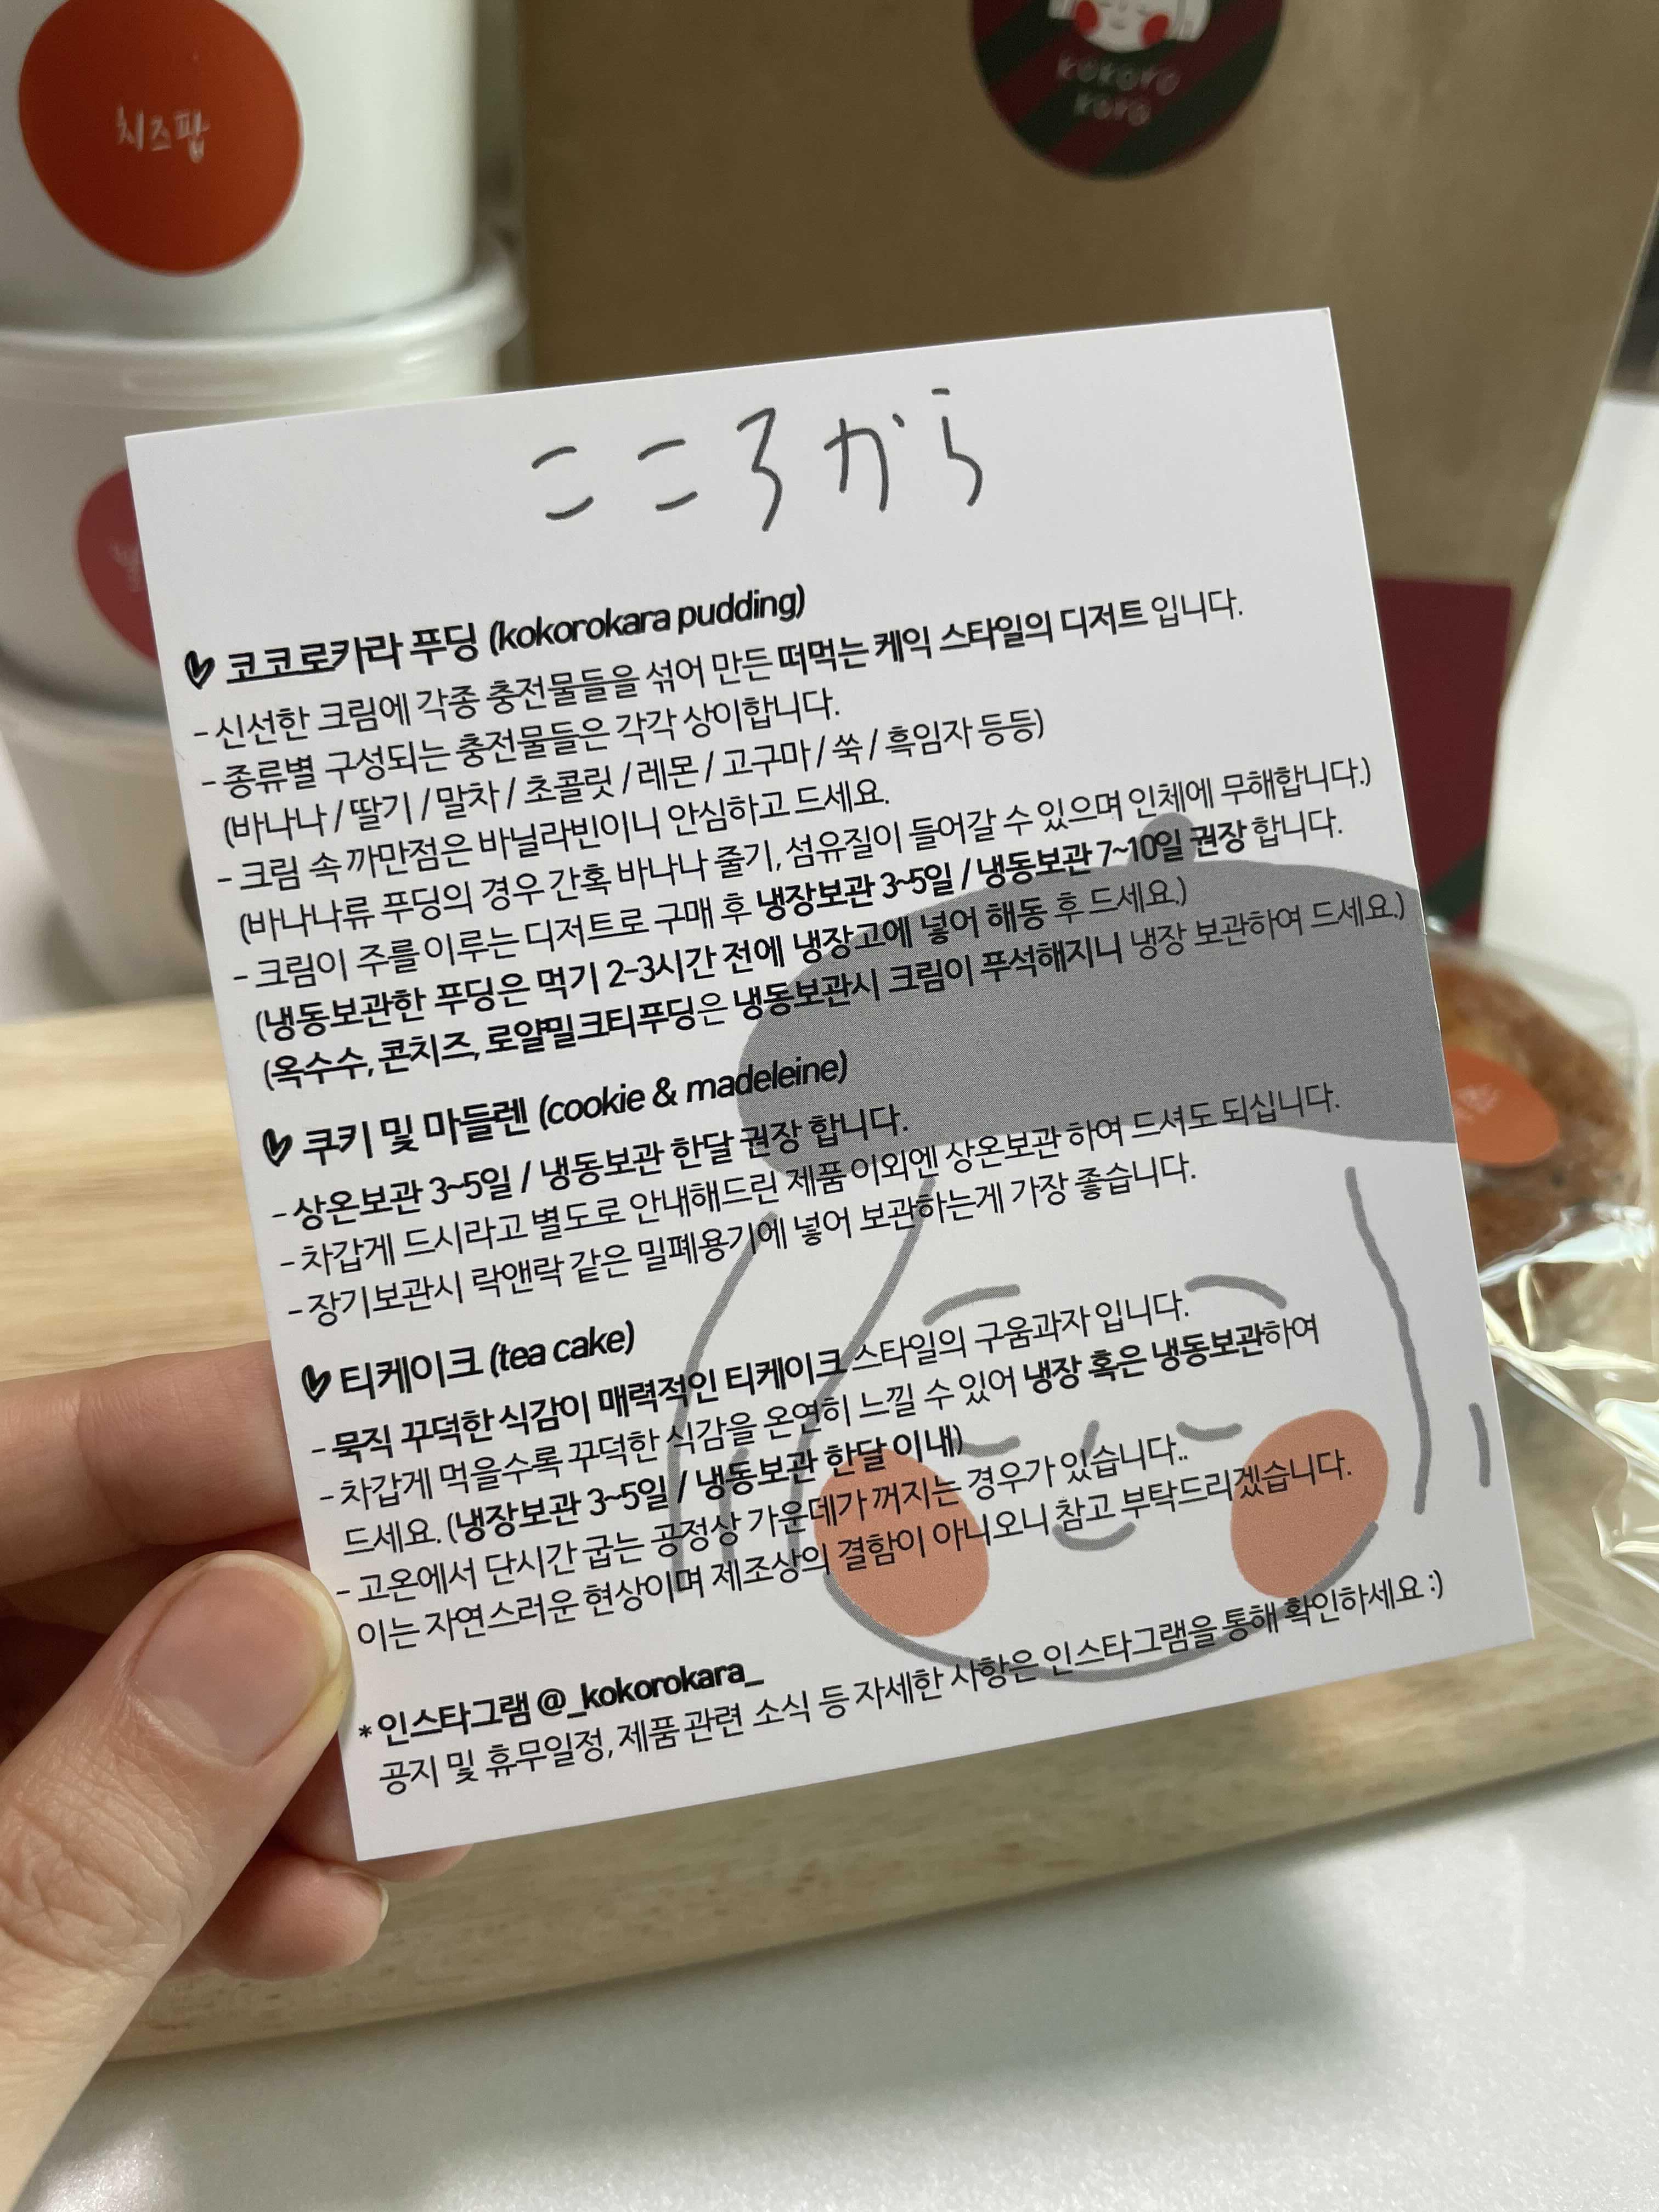 치즈팝
kokoro
こころから
코코로카라 푸딩 (kokorokara pudding)
- 신선한 크림에 각종 충전물들을 섞어 만든 떠먹는 케익 스타일의 디저트 입니다.
- 종류별 구성되는 충전물들은 각각 상이합니다.
(바나나 / 딸기 / 말차 / 초콜릿 / 레몬 / 고구마 / 쑥 / 흑임자 등등)
- 크림 속 까만점은 바닐라빈이니 안심하고 드세요.
(바나나류 푸딩의 경우 간혹 바나나 줄기, 섬유질이 들어갈 수 있으며 인체에 무해합니다.)
- 크림이 주를 이루는 디저트로 구매 후 냉장보관 3~5일 / 냉동보관 7~10일 권장 합니다.
(냉동보관한 푸딩은 먹기 2-3시간 전에 냉장고에 넣어 해동 후 드세요.)
(옥수수, 콘치즈, 로얄밀크티푸딩은 냉동보관시 크림이 푸석해지니 냉장 보관하여 드세요.)
쿠키 및 마들렌 (cookie & madeleine)
- 상온보관 3~5일 / 냉동보관 한달 권장 합니다.
- 차갑게 드시라고 별도로 안내해드린 제품 이외엔 상온보관 하여 드셔도 되십니다.
- 장기보관시 락앤락 같은 밀폐용기에 넣어 보관하는게 가장 좋습니다.
티케이크 (tea cake)
- 묵직 꾸덕한 식감이 매력적인 티케이크 스타일의 구움과자 입니다.
- 차갑게 먹을수록 꾸덕한 식감을 온연히 느낄 수 있어 냉장 혹은 냉동보관하여
드세요. (냉장보관 3~5일 / 냉동보관 한달 이내)
- 고온에서 단시간 굽는 공정상 가운데가 꺼지는 경우가 있습니다..
이는 자연스러운 현상이며 제조상의 결함이 아니오니 참고 부탁드리겠습니다.
* 인스타그램 @_kokorokara_
공지 및 휴무일정, 제품 관련 소식 등 자세한 사항은 인스타그램을 통해 확인하세요 :)